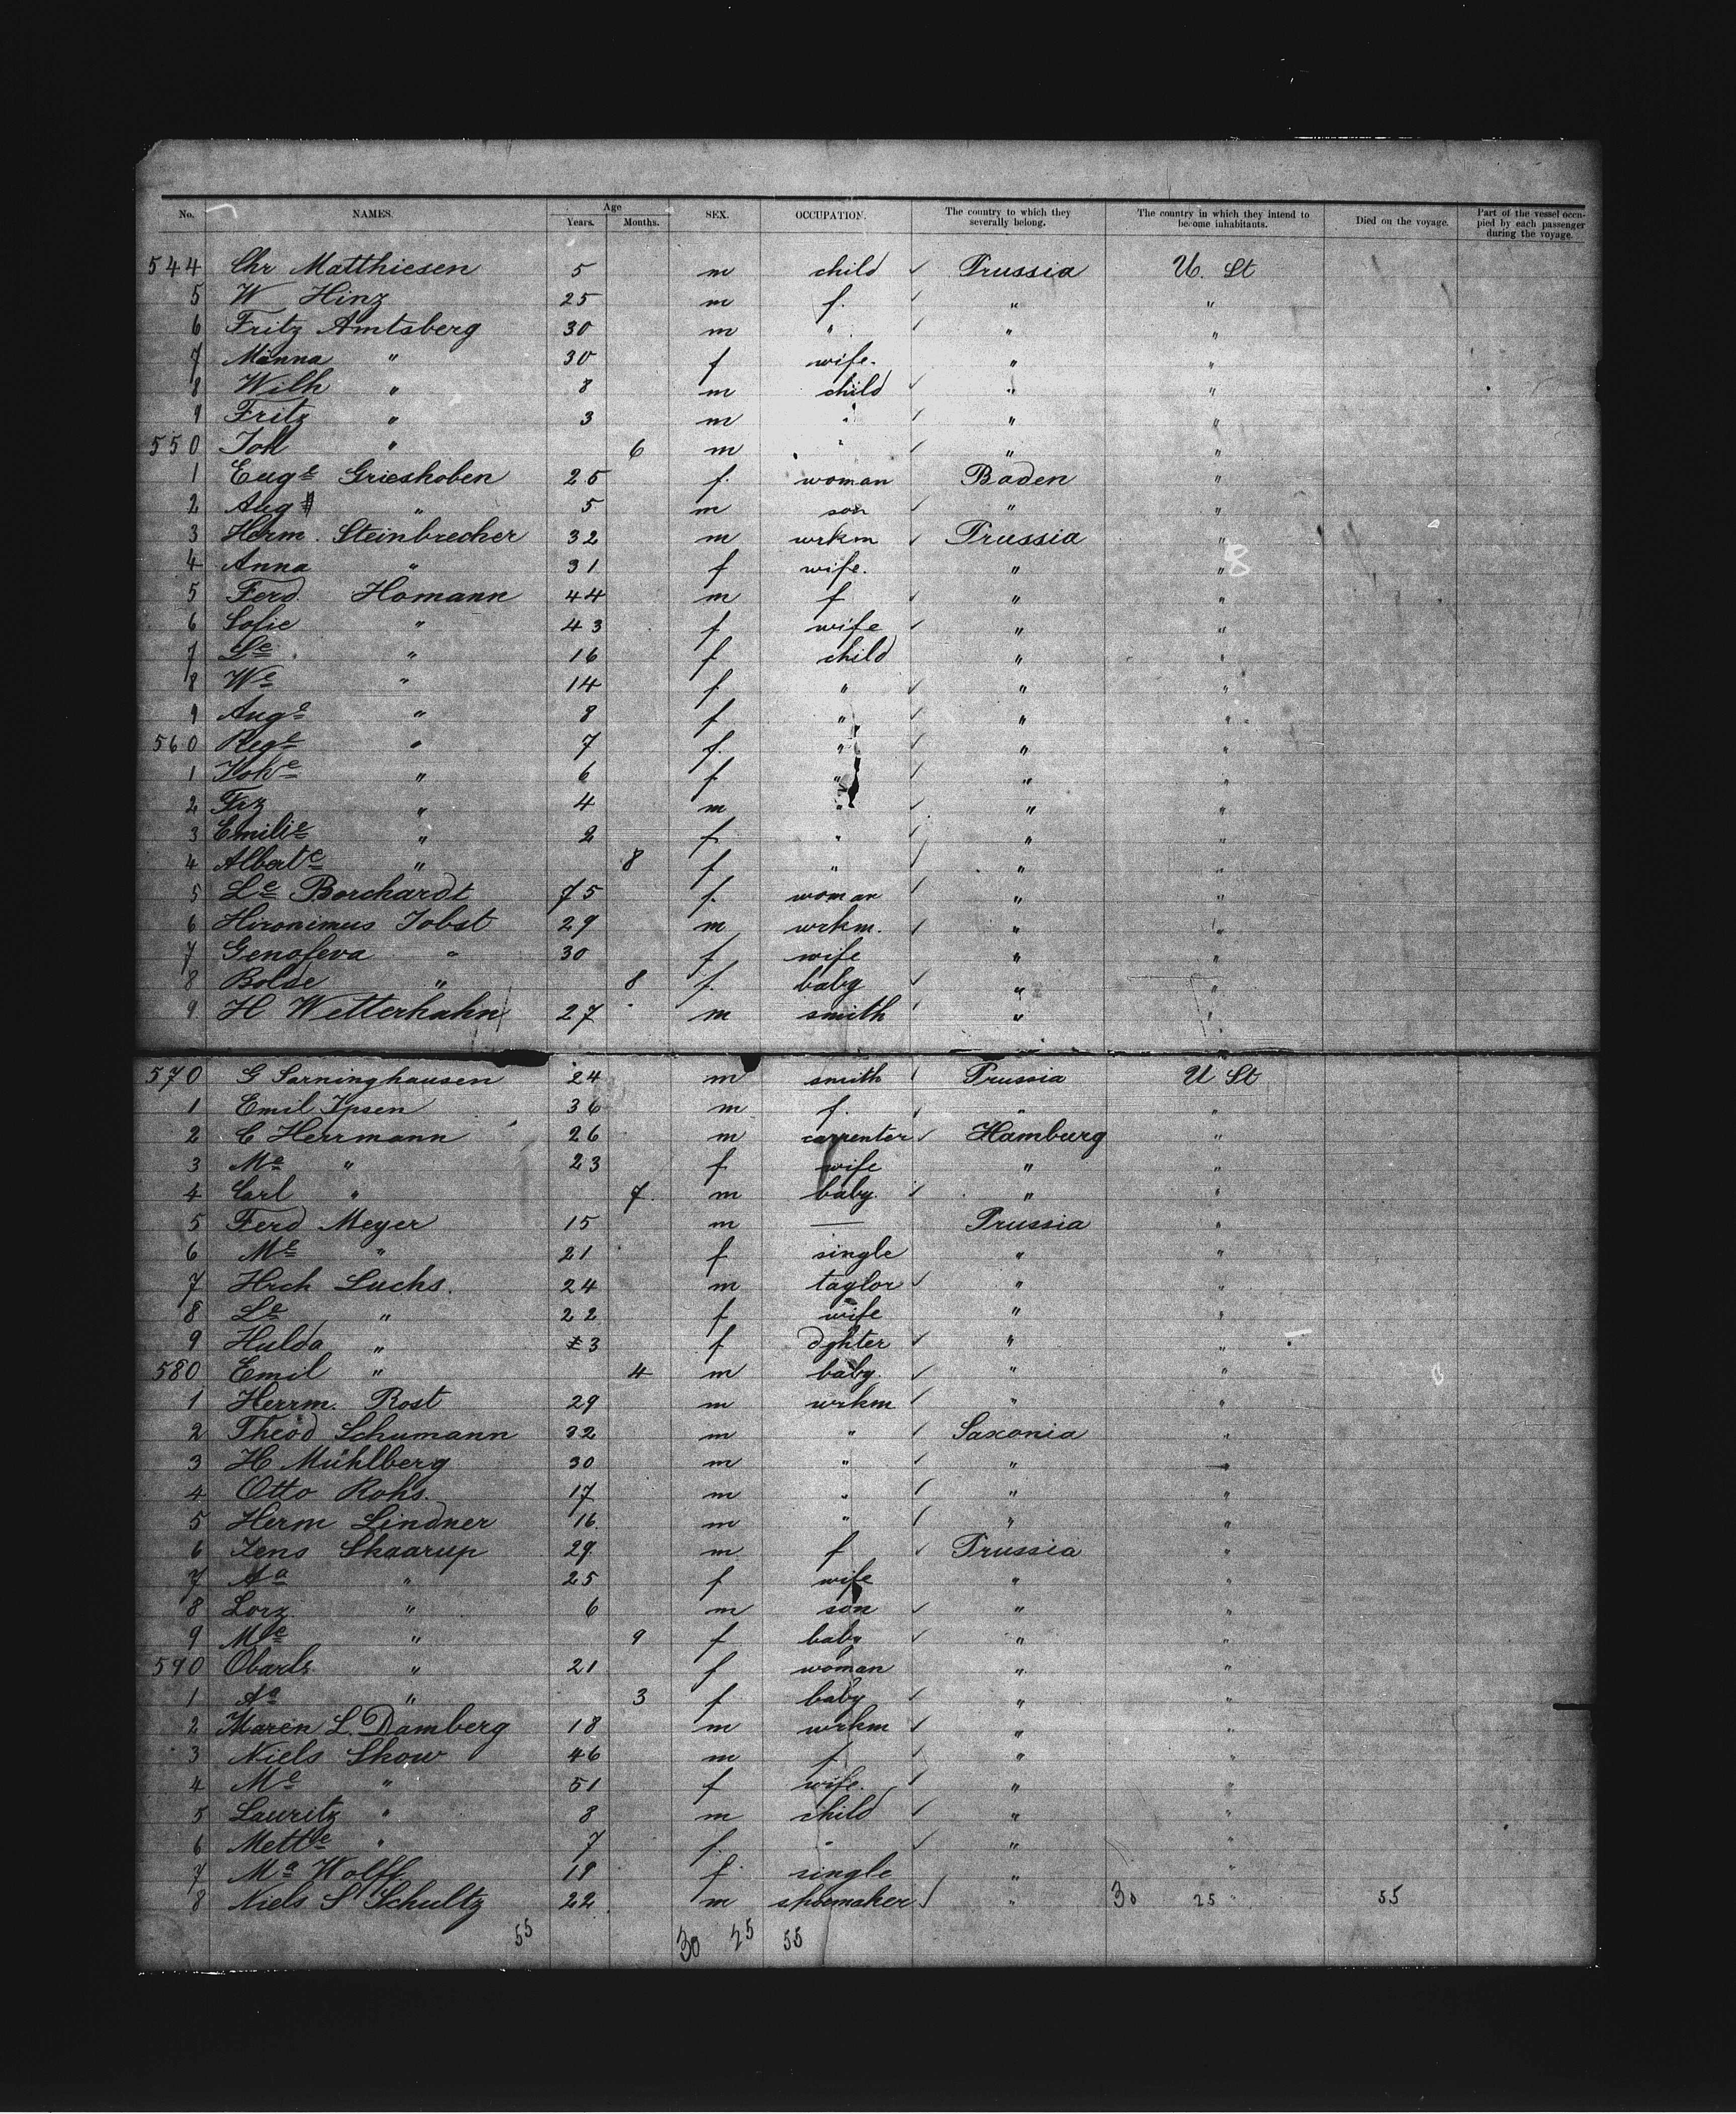 No. NAMES. Age Years. Months. SEX. OCCUPATION. The country to which they severally belong. The country in which they intend to become inhabitants. Died on the voyage. Part of the vessel occupied by each passenger during the voyage.
544 Chr Matthiesen 5 m child ✓ Prussia U. St
5 W Hinz 25 m f. ✓ " "
6 Fritz Amtsberg 30 m " ✓ " "
7 Minna " 30 f wife. " "
8 Wilh " 8 m child ✓ " "
9 Fritz " 3 m " ✓ " "
550 Joh " 6 m " ✓ " "
1 Euge Grieshoben 25 f. woman Baden "
2 Aug " 5 m son ✓ " "
3 Herm. Steinbrecher 32 m wrkm ✓ Prussia "
4 Anna " 31 f wife. " "
5 Ferd. Homann 44 m f ✓ " "
6 Sofie " 43 f wife ✓ " "
7 Le " 16 f child " "
8 We " 14 f " ✓ " "
9 Auge " 8 f " ✓ " "
560 Rege " 7 f. " ✓ " "
1 Johe " 6 f " ✓ " "
2 Frz " 4 m " ✓ " "
3 Emilie " 2 f " ✓ " "
4 Alberte " 8 f " ✓ " "
5 Le Borchardt 75 f. woman ✓ " "
6 Hironimus Jobst 29 m wrkm. ✓ " "
7 Genofeva " 30 f wife " "
8 Bolde " 8 f. baby ✓ " "
9 H Wetterhahn 27 m smith ✓ " "
570 G Sarninghausen 24 m smith ✓ Prussia U St
1 Emil Ipsen 36 m f. ✓ " "
2 C Herrmann 26 m carpenter ✓ Hamburg "
3 Me " 23 f wife " "
4 Carl " 7 m baby. ✓ " "
5 Ferd Meyer 15 m — Prussia "
6 Me " 21 f single " "
7 Hrch Luchs. 24 m taylor ✓ " "
8 Le " 22 f wife " "
9 Hulda " 3 f dghter ✓ " "
580 Emil " 4 m baby. ✓ " "
1 Herrm. Rost 29 m wrkm ✓ " "
2 Theod Schumann 32 m " ✓ Saxonia "
3 H Mühlberg 30 m " ✓ " "
4 Otto Rohs. 17 m " ✓ " "
5 Herm Lindner 16 m " ✓ " "
6 Jens Skaarup 29 m f ✓ Prussia "
7 Aa " 25 f wife " "
8 Lorz " 6 m son ✓ " "
9 Me " 9 f baby ✓ " "
590 " 21 f woman " "
1 Aa " 3 f baby ✓ " "
2 Maren L. Damberg 18 m wrkm ✓ " "
3 Niels Skow 46 m f ✓ " "
4 Me " 51 f wife. ✓ " "
5 Lauritz " 8 m child ✓ " "
6 Mette " 7 f. " ✓ " "
7 Ma Wolff 19 f. single " "
8 Niels S Schultz 22 m shoemaker ✓ " 30 25 " 55
55 30 25 55